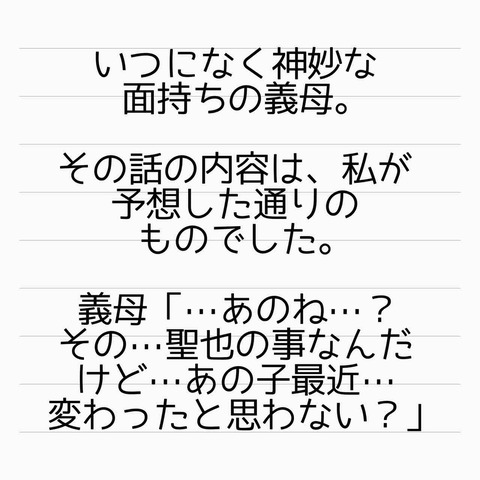 いつになく神妙な
面持ちの義母。
その話の内容は、私が
予想した通りの
ものでした。
義母「…あのね…？
その…聖也の事なんだ
けど…あの子最近…
変わったと思わない？」